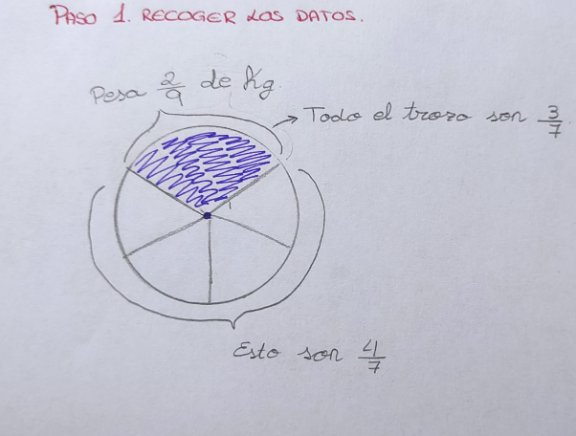 PASO 1. RECOGER LOS DATOS.
Pesa 2/9 de Kg.
Todo el trozo son 3/7
Esto son 4/7